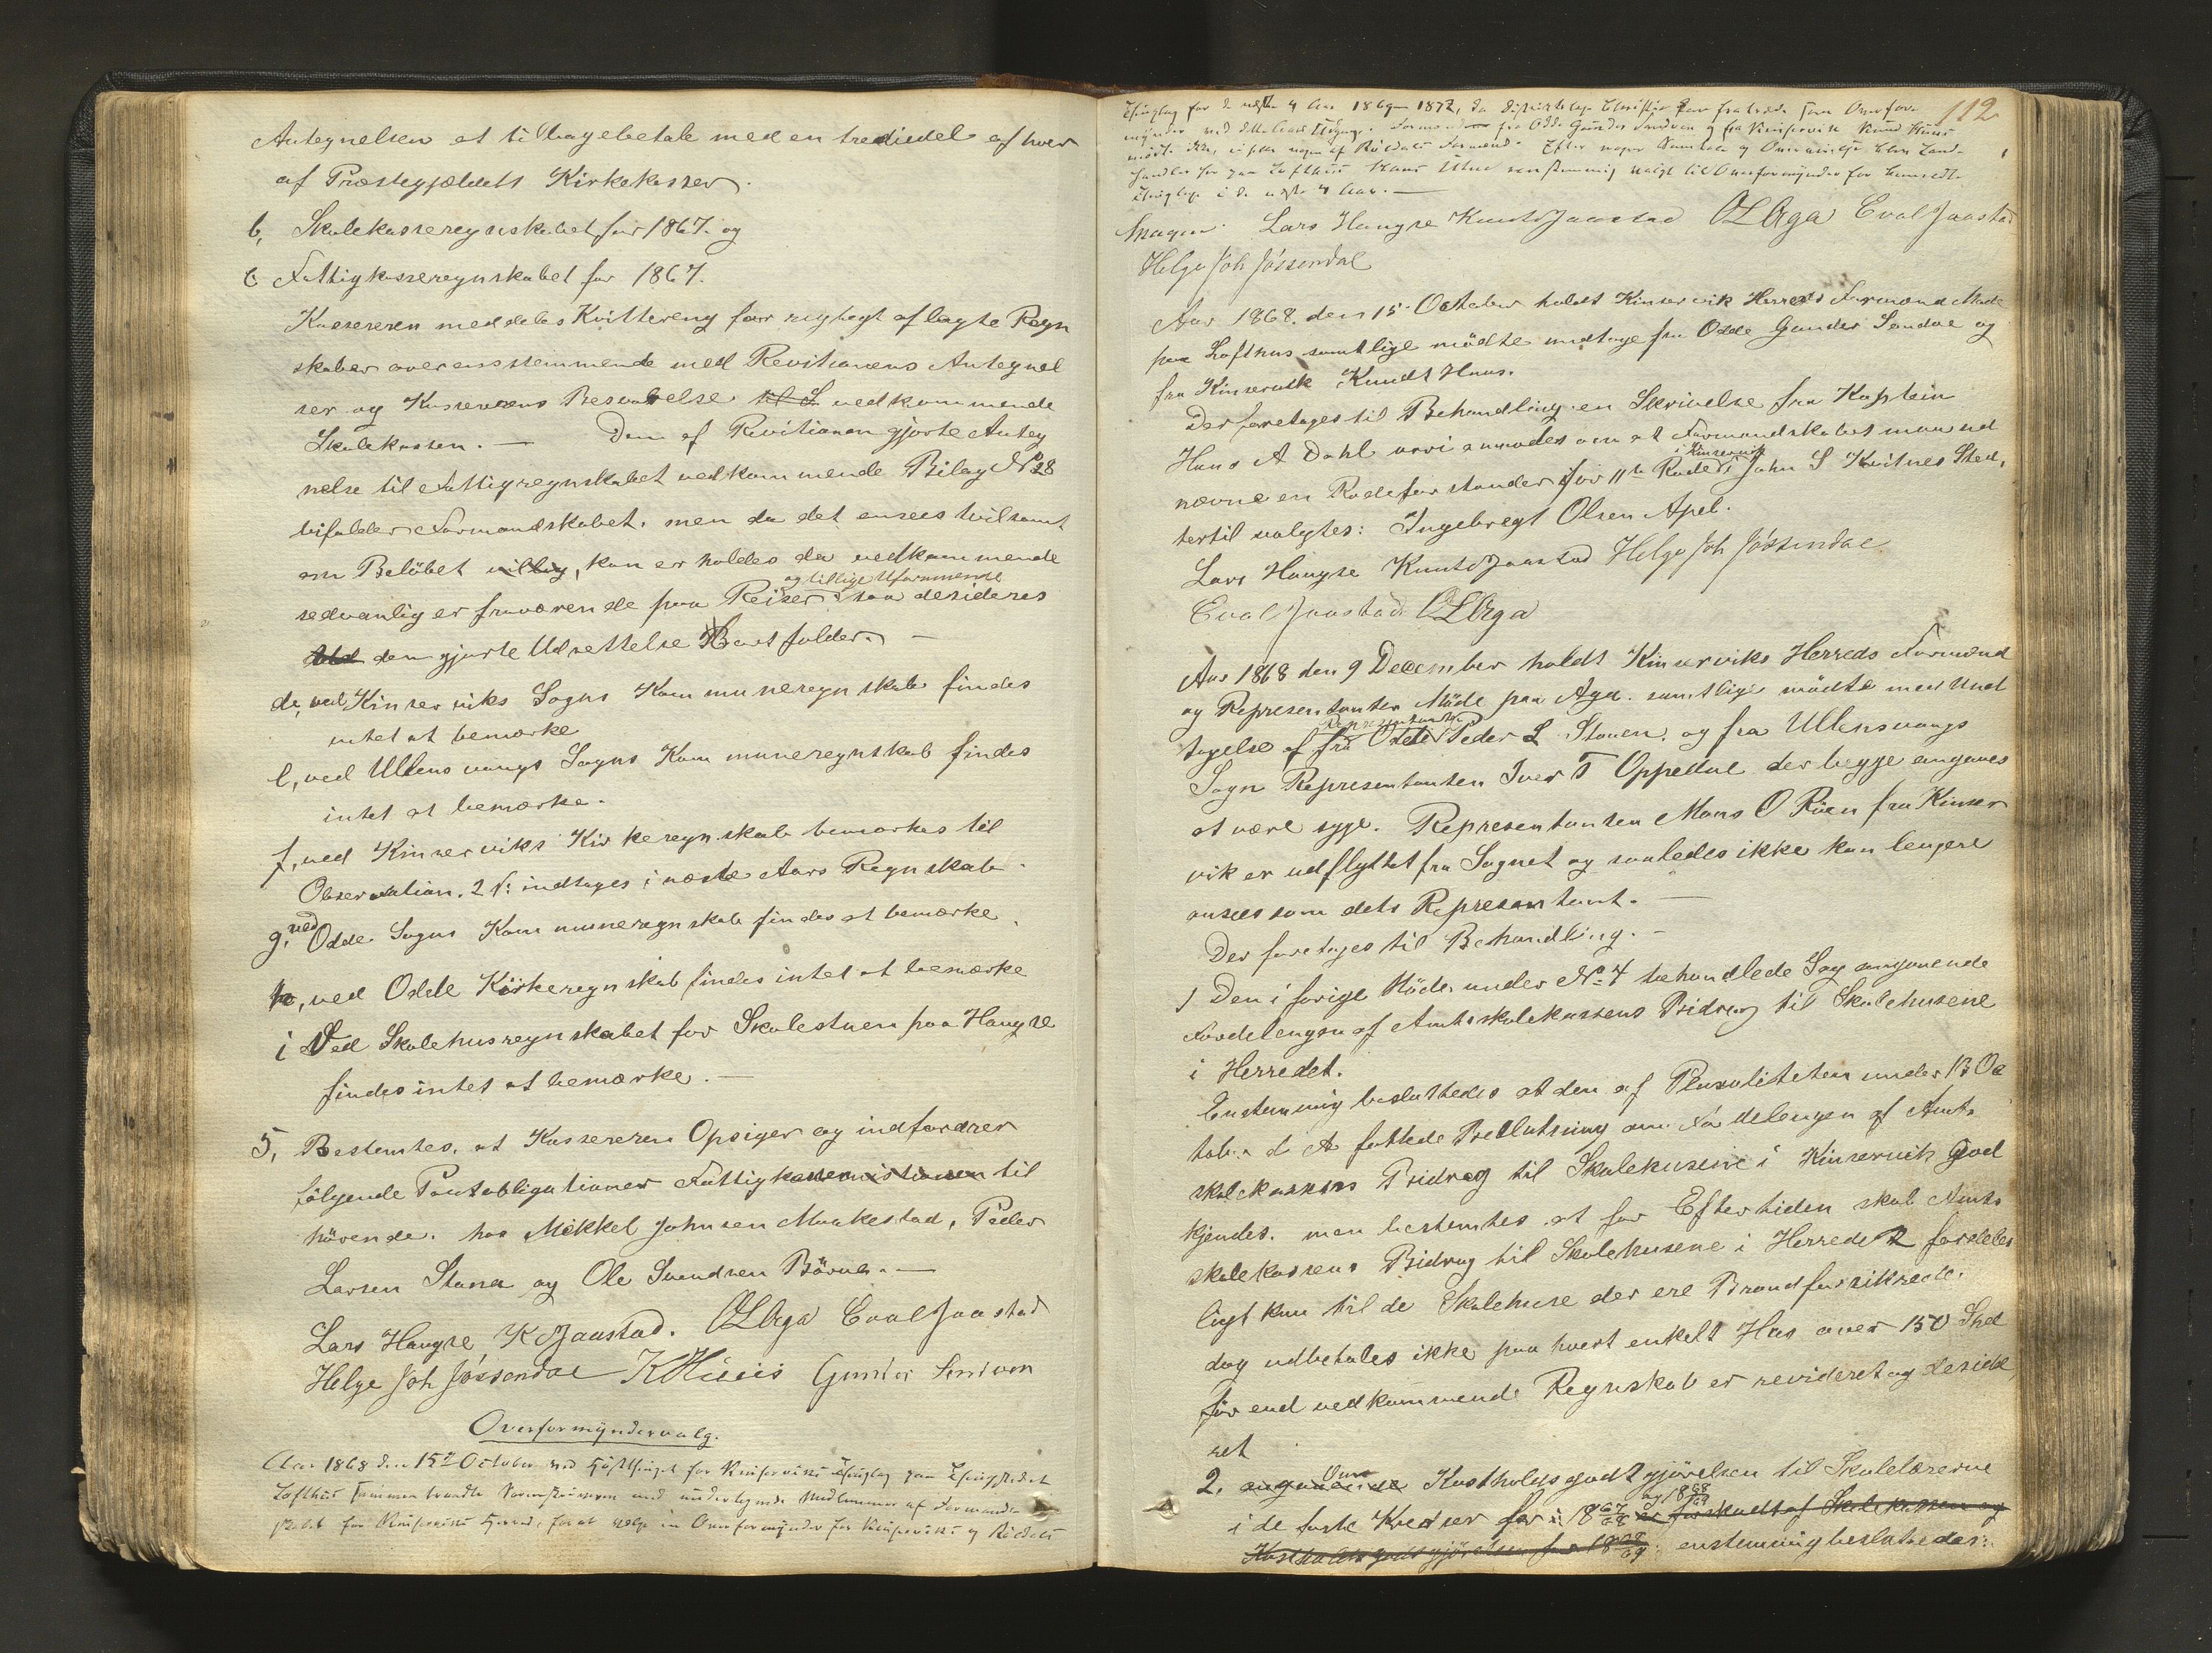 Antegnelsen at tilbagebetale med en trediedel af hver
af Præstegjældets Kirkekasser.
b, Skolekasseregnskabet for 1867. og
c Fattigkasseregnskabet for 1867.
Kassereren meddeles Kvittering for rigtigt aflagte Regn
skaber overensstemmende med Revitionens Antegnel
ser og Kassererens Besvarelse til S vedkommende
Skolekassen. — Den af Revitionen gjorte Anteg
nelse til Fattigregnskabet vedkommende Bilag No 28
bifalder Formandskabet. men da det ansees tvilsomt
om Beløbet villig, kan erholdes da vedkommende
og tillige Uformuende
sedvanlig er fraværende paa Reiser saa desideres
den gjorte Udsettelse Bortfalder. —
d, ved Kinserviks Sogns Kommuneregnskab findes
intet at bemærke
e, ved Ullensvangs Sogns Kommuneregnskab findes
intet at bemærke.
f, ved Kinserviks Kirkeregnskab bemærkes til
Observation. 2 s: indtages i næste Aars Regnskab.
g, ved Odde Sogns Kommuneregnskab findes at bemærke.
h, ved Odde Kirkeregnskab findes intet at bemærke
i Ved Skolehusregnskabet for Skolestuen paa Haugse
findes intet at bemærke. —
5, Bestemtes, at Kassereren Opsiger og indfordrer
følgende Pantobligationer Fattigkassen til
hørende. hos Mikkel Johnsen Maakestad, Peder
Larsen Stana og Ole Svendsen Børve. —
Lars Haugse K Jaastad. O L Aga Eval Jaastad
Helge Joh Jøssendal K Huus Gunder Sandven
Overformyndervalg.
Aar 1868 den 15de October ved Høstthinget for Kinserviks Thinglag paa Thingstedet
Lofthus sammentraadte Sorenskriveren med undertegnede Medlemmer af Formand-
skabet for Kinserviks Herred, for at vælge en Overformynder for Kinserviks og Røldals
112
Thinglag for de næste 4 Aar 1869 – 1872, da
mynder ved dette Aars Udgang. Formand fra Odde Gunder Sandven og fra Kinservik Knud Huus
mødte ikke, ei heller nogen af Røldals Formænd. Efter nogen Samtale og Omstemning blev Land-
handler paa Lofthus Hans Utne eenstemmig valgt til Overformynder for bemeldte
Thinglag i de næste 4 Aar. —
Lars Haugse Knut Jaastad O L Aga Eval Jaastad
Helge Joh Jøssendal
Aar 1868. den 15. October holdt Kinservik Herreds Formænd Møde
paa Lofthus samtlige mødte undtage fra Odde Gunder Sandve og
fra Kinservik Knudt Huus.
Der foretages til Behandling en Skrivelse fra Kaptein
Hans A Dahl vori anmodes om at Formandskabet maa ud
i Kinservik
nævne en Rodeforstander for 11te Rode i John S Kvitnes Sted,
tertil valgtes: Ingebregt Olsen Apel.
Lars Haugse Knut Jaastad Helge Joh Jøssendal
Eval Jaastad O L Aga
Aar 1868 den 9 December holdt Kinserviks Herreds Formænd
og Representanter Møde paa Aga. samtlige mødte med Und
Representanten
tagelse af fra Odde Peder L Stanen, og fra Ullensvangs
Sogn Representanten Iver T Oppedal der begge angaves
at være syge. Representanten Mons O Røen fra Kinser
vik er udflyttet fra Sognet og saaledes ikke kan lengere
ansees som dets Representant. —
Der foretages til Behandling. —
1 Den i forige Møde under No 4 behandlede Sag angaaende
Fordelengen af Amtsskolekassens Bidrag til Skolehusene
i Herredet.
Enstemmig besluttedes at den af Pluraliteten under 13 Oc
tob. d A fattede Beslutning om Fordelengen af Amts
skolekassens Bidrag til Skolehusene i Kinservik god
kjendes. men bestemtes at for Eftertiden skal Amts
skolekassens Bidrag til Skolehusene i Herredet fordeles
ligt kun til de Skolehuse der ere Brandforsikrede.
dog udbetales ikke paa hvert enkelt Hus over 150 Spd
før end vedkommende Regnskab er revideret og deside
ret
2. angaaende Om Kostholdsgodtgjørelsen til Skolelærerne
og 1868/69
i de faste Kredser for i 1867/68 er forskudt af Skolekassen og
Kostholdsgodtgjørelsen for 1868/69 enstemmig besluttedes: